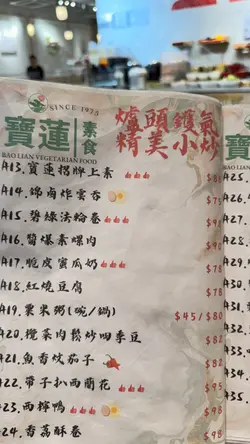 SINCE 1975
寶蓮 素食
BAO LIAN VEGETARIAN FOOD
爐頭鑊氣
精美小炒
A13.寶蓮招牌上素
A14.錦鹵炸雲吞 $78
A15.碧綠法輪卷 $98
A16.醬爆素螺肉 $90
A17.脆皮蜜瓜奶 $78
A18.紅燒豆腐 $78
A19.粟米粥(碗/鍋) $45/$80
A20.欖菜肉鬆炒四季豆 $82
A21.魚香炆茄子 $82
A22.帶子扒西蘭花 $95
A23.西檸鴨 $98
A24.香荔酥卷 $98
A25.
A26.
A27.
A28.
A29.
A30.
A31.
A32.
A33.
A34.
A35.